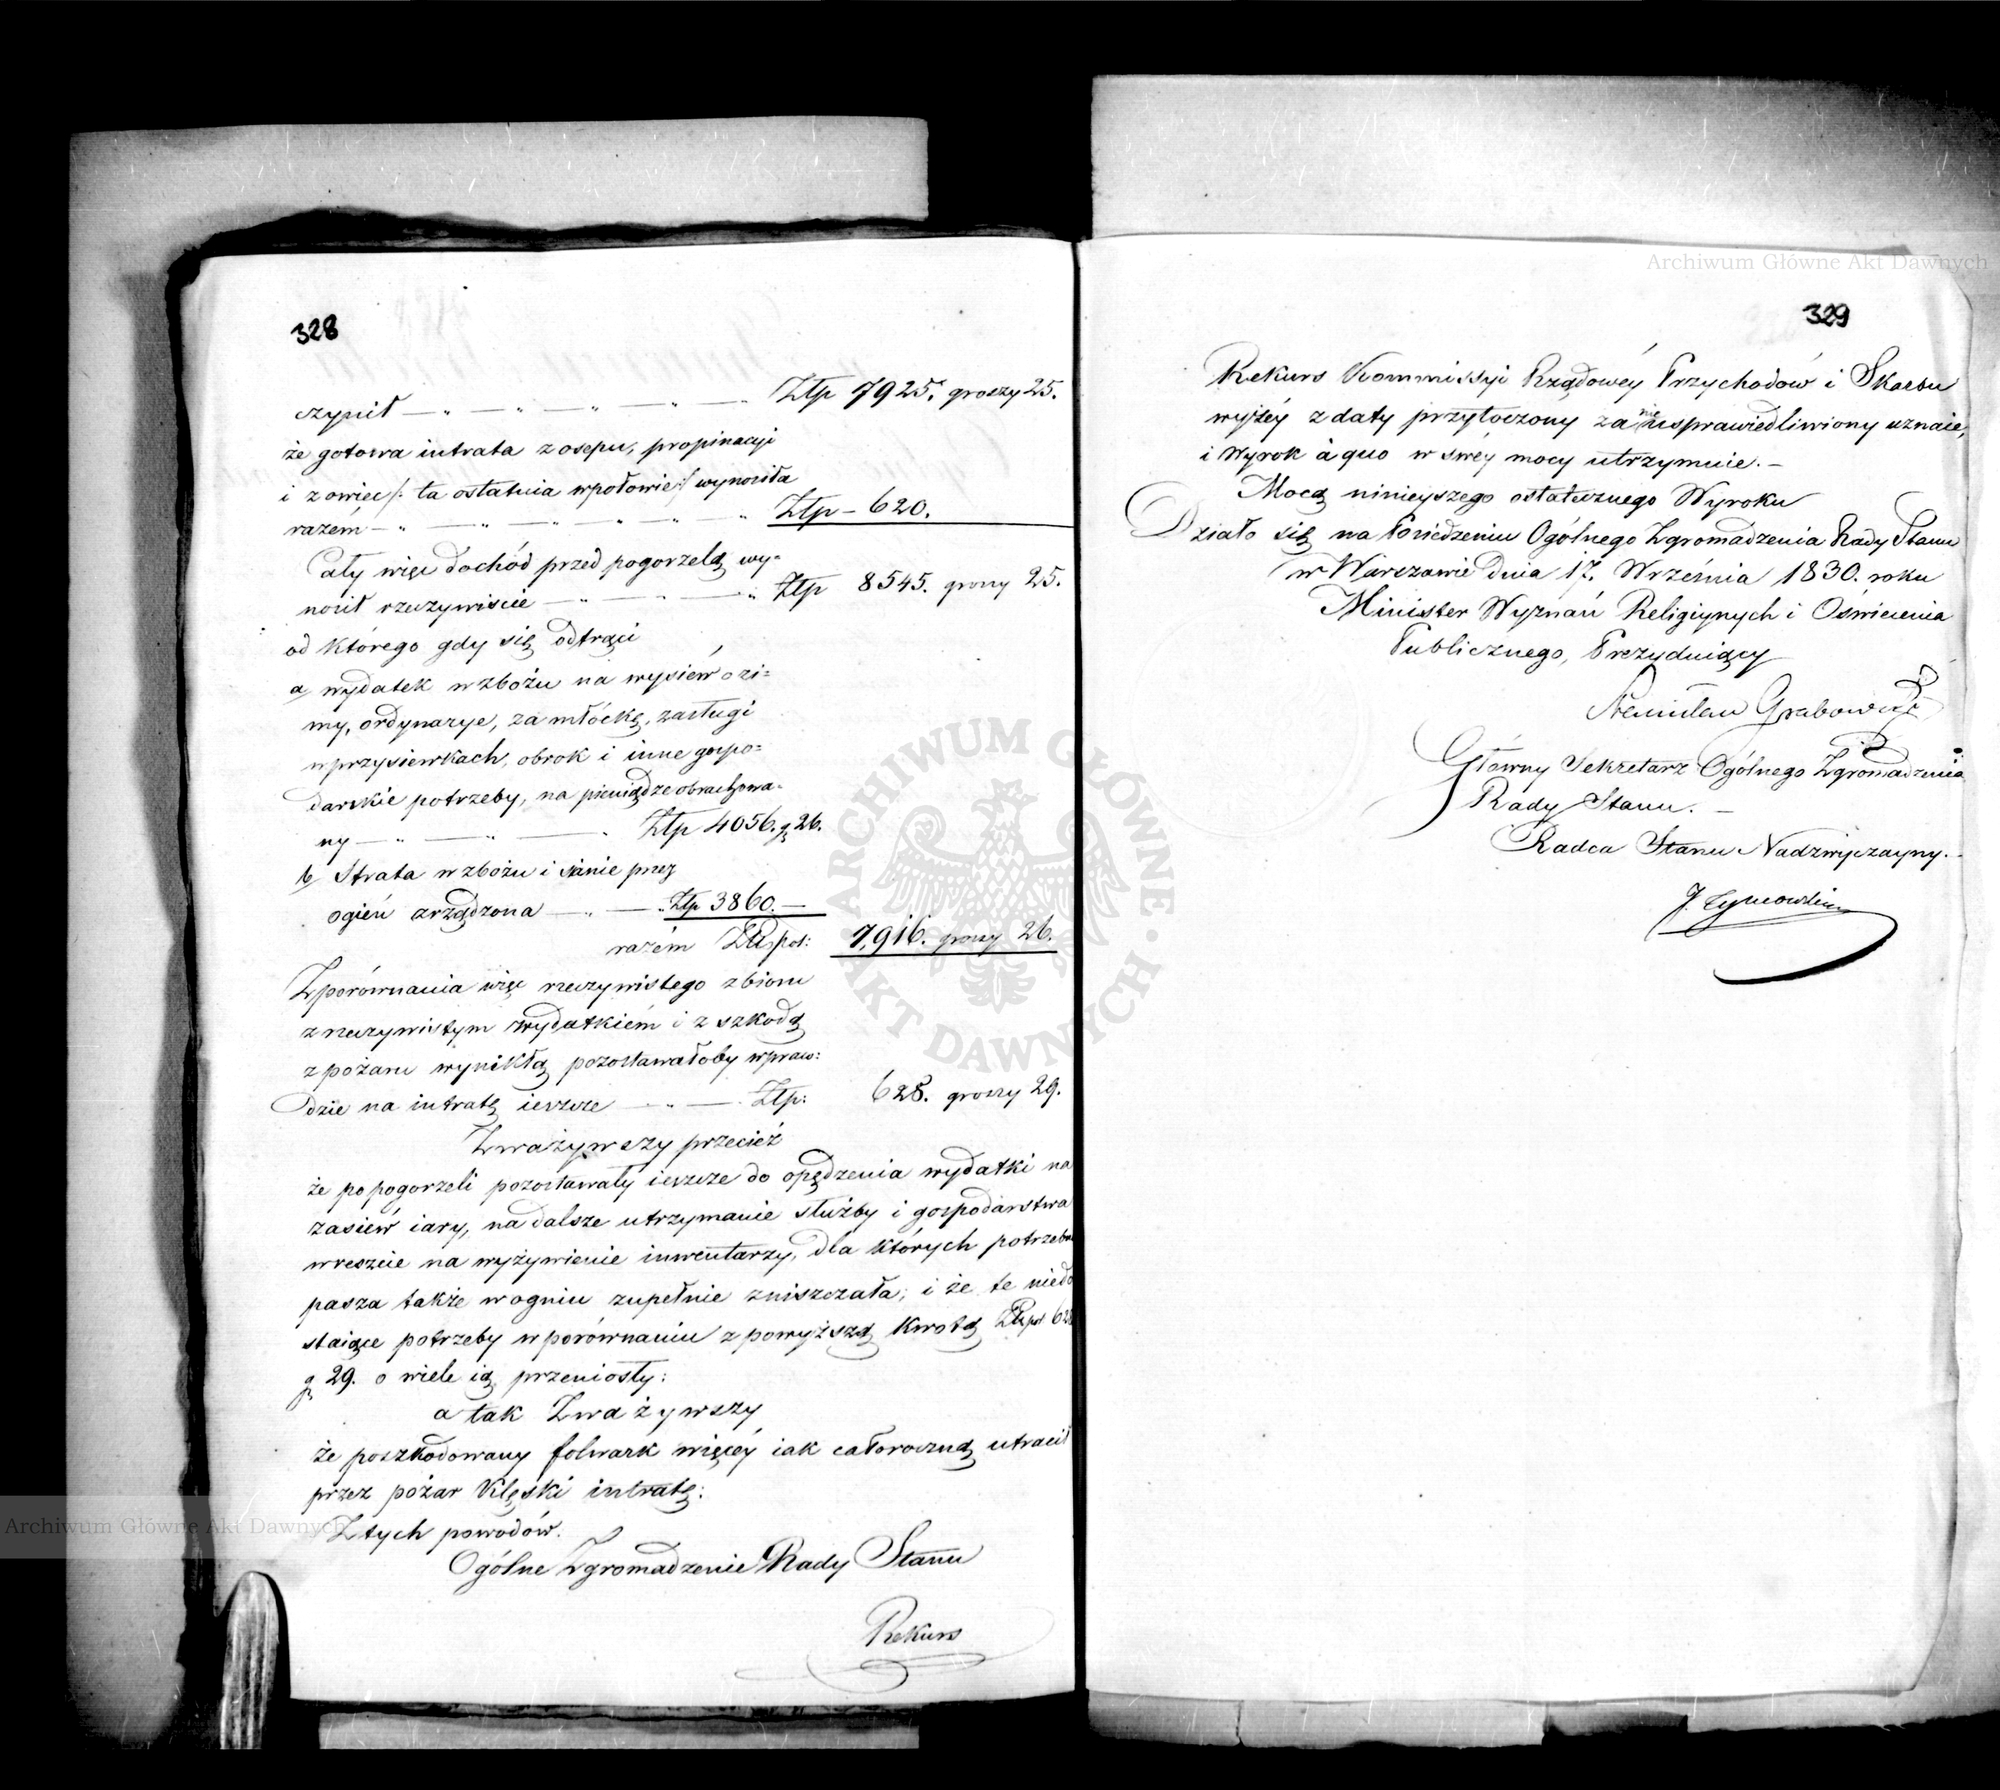 328
czynił — „ — „ — „ — „ Ztp 7925. groszy 25.
że gotowa intrata z osepu, propinacyi
i z owiec /: ta ostatnia wpołowie :/ wynosiła
razem — „ — „ — „ — „ Ztp — 620.
Cały więc dochód przed pogorzelą wy=
nosił rzeczywiście — „ — „ — „ Ztp 8545. groszy 25.
od którego gdy się odtrąci
a/ wydatek w zbożu na wysiew ozi=
my, ordynarye, za młóckę, zasługi
w przysiewkach, obrok i inne gospo=
darskie potrzeby, na pieniądze obrachowa=
ny — „ — „ — „ Ztp 4056. gr 26.
b/ Strata w zbożu i sianie przez
ogień zrządzona — „ — „ Ztp 3860. —
razém Złt pol: 7,916. groszy 26.
Zporównania więc rzeczywistego zbioru
z rzeczywistym wydatkiém i z szkodą
z pożaru wynikłą pozostawałoby wpraw:
dzie na intratę ieszcze — „ — Ztp: 628. groszy 29.
Zważywszy przecież
że po pogorzeli pozostawały ieszcze do opędzenia wydatki na
zasiew iary, na dalsze utrzymanie służby i gospodarstwa
wreszcie na wyżywienie inwentarzy, dla których potrzebna
pasza także w ogniu zupełnie zniszczała; i że te niedo
staiące potrzeby w porównaniu z powyższą kwotą Złt pol 628
gr 29. o wiele ią przeniosły:
a tak Zważywszy
że poszkodowany folwark więcéy iak całoroczną utracił
przez pożar klęski intratę:
Z tych powodów.
Ogólne Zgromadzenie Rady Stanu
Rekurs
329
Rekurs Kommissyi Rządowéy Przychodów i Skarbu
wyżéy z daty przytoczony za nieusprawiedliwiony uznaie,
i Wyrok à quo w swéy mocy utrzymuie. —
Mocą ninieyszego ostatecznego Wyroku
Działo się na Posiedzeniu Ogólnego Zgromadzenia Rady Stanu
w Warszawie dnia 17. Września 1830. roku
Minister Wyznań Religiynych i Oświecenia
Publicznego, Prezyduiący
Stanisław Grabowski
Główny Sekretarz Ogólnego Zgromadzenia
Rady Stanu. —
Radca Stanu Nadzwyczayny. —
J. Tymowski
Archiwum Główne Akt Dawnych
Archiwum Główne Akt Dawnych
ARCHIWUM GŁÓWNE AKT DAWNYCH